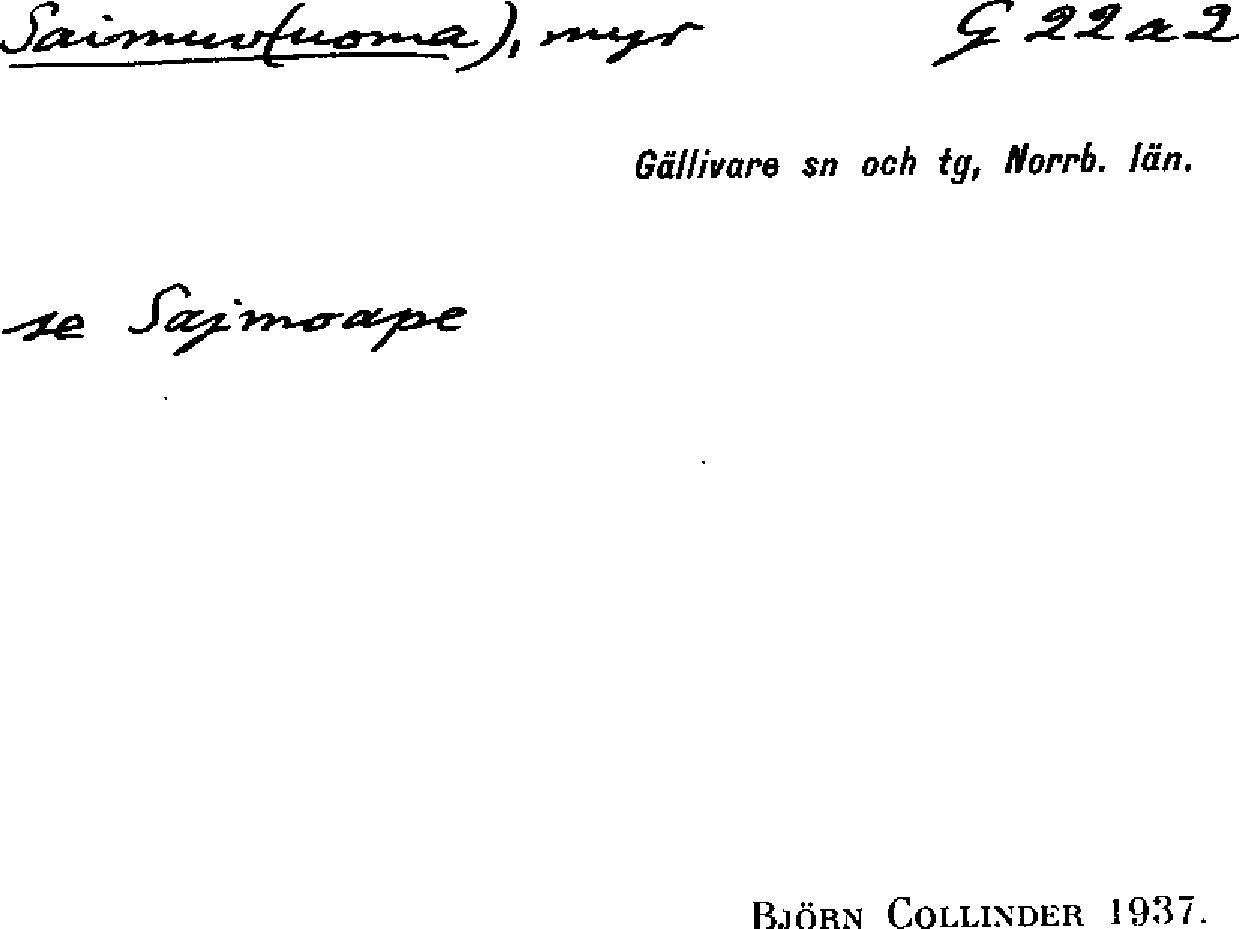 Saimuo(uoma), myr G 22 a 2
Gällivare sn och tg, Norrb. län.
se Sajmoape
BJÖRN COLLINDER 1937.